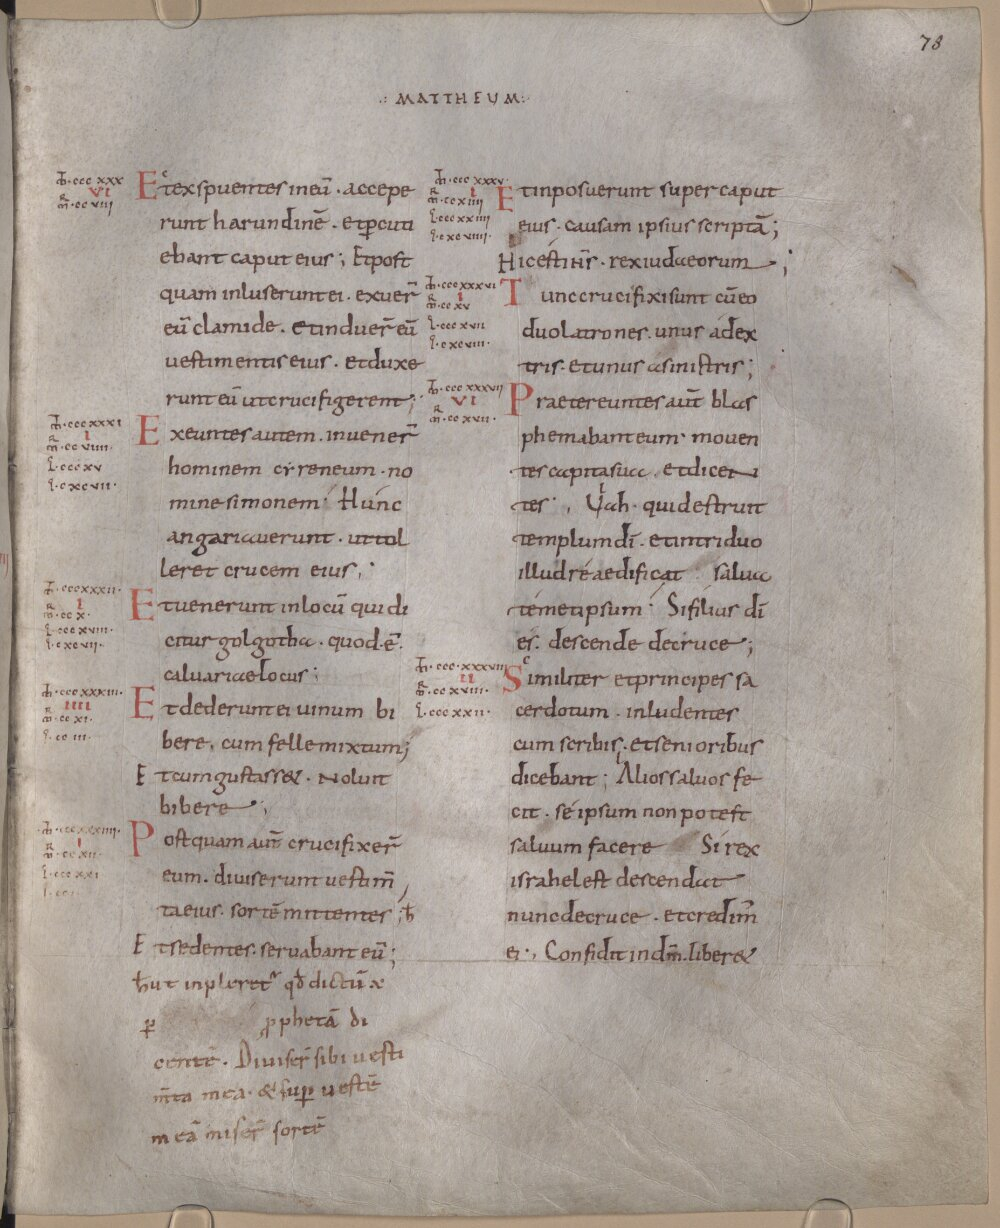 78
·: MATTHEUM:·
Ꝉ·ccc xxx
VI
m̄·cc viii
Et exspuentes in eū · accepe
runt harundinē · et ꝑcuti
ebant caput eius ; Et post
quam inluserunt ei · exuer̄
eū clamide · et induer̄ eū
uestimentis eius · et duxe
runt eū ut crucifigerent ;
Ꝉ·ccc xxxi
I
m̄·cc viiii·
l·ccc xv
l·c xcvii·
Exeuntes autem · inuener̄
hominem cyreneum · no
mine simonem Hunc
angariauerunt · ut tol
leret crucem eius ;
Ꝉ·ccc xxxii·
I
m̄·cc x·
l·ccc xviii·
l·c xcvii·
Et uenerunt in locū qui di
citur golgotha · quod · ē
caluariae locus ;
Ꝉ·ccc xxxiii·
IIII
m̄·cc xi·
l·cc iii·
Et dederunt ei uinum bi
bere · cum felle mixtum ;
Et cum gustass& · Noluit
bibere ;
Ꝉ·ccc xxxiiii·
I
m̄·cc xii·
l·ccc xxi
Postquam aut̄ crucifixer̄
eum · diuiserunt uestim̄
ta eius · sortē mittentes ; h̄
Et sedentes · seruabant eū ;
h̄ ut inpleret qđ dictū ē
ꝑ ꝓphetā di
centē · Diuiser̄ sibi uesti
m̄ta mea · & suꝑ uestē
meā miser̄ sortē
Ꝉ·ccc xxxv·
I
m̄·cc xiiii
l·ccc xxiiii
l·c xcviiii·
Et inposuerunt super caput
eius · causam ipsius scriptā ;
Hic est ih̄s · rex iudaeorum ;
Ꝉ·ccc xxxvi
I
m̄·cc xv
l·ccc xvii
l·c xcviii·
Tunc crucifixi sunt cū eo
duo latrones · unus a dex
tris · et unus a sinistris ;
Ꝉ·ccc xxxvii
VI
m̄·cc xvii·
Praetereuntes aut̄ blas
phemabant eum · mouen
tes capita sua · et dicen
tes · Uah · qui destruit
templum dī · et in triduo
illud reaedificat salua
temetipsum Si filius dī
es · descende de cruce ;
Ꝉ·ccc xxxviii
II
m̄·cc xviii·
l·ccc xxii·
Similiter et principes sa
cerdotum · inludentes
cum scribis · et senioribus
dicebant ; Alios saluos fe
cit · se ipsum non potest
saluum facere Si rex
israhel est descendat
nunc de cruce · et credim̄
ei · Confidit in dm̄ · liber&